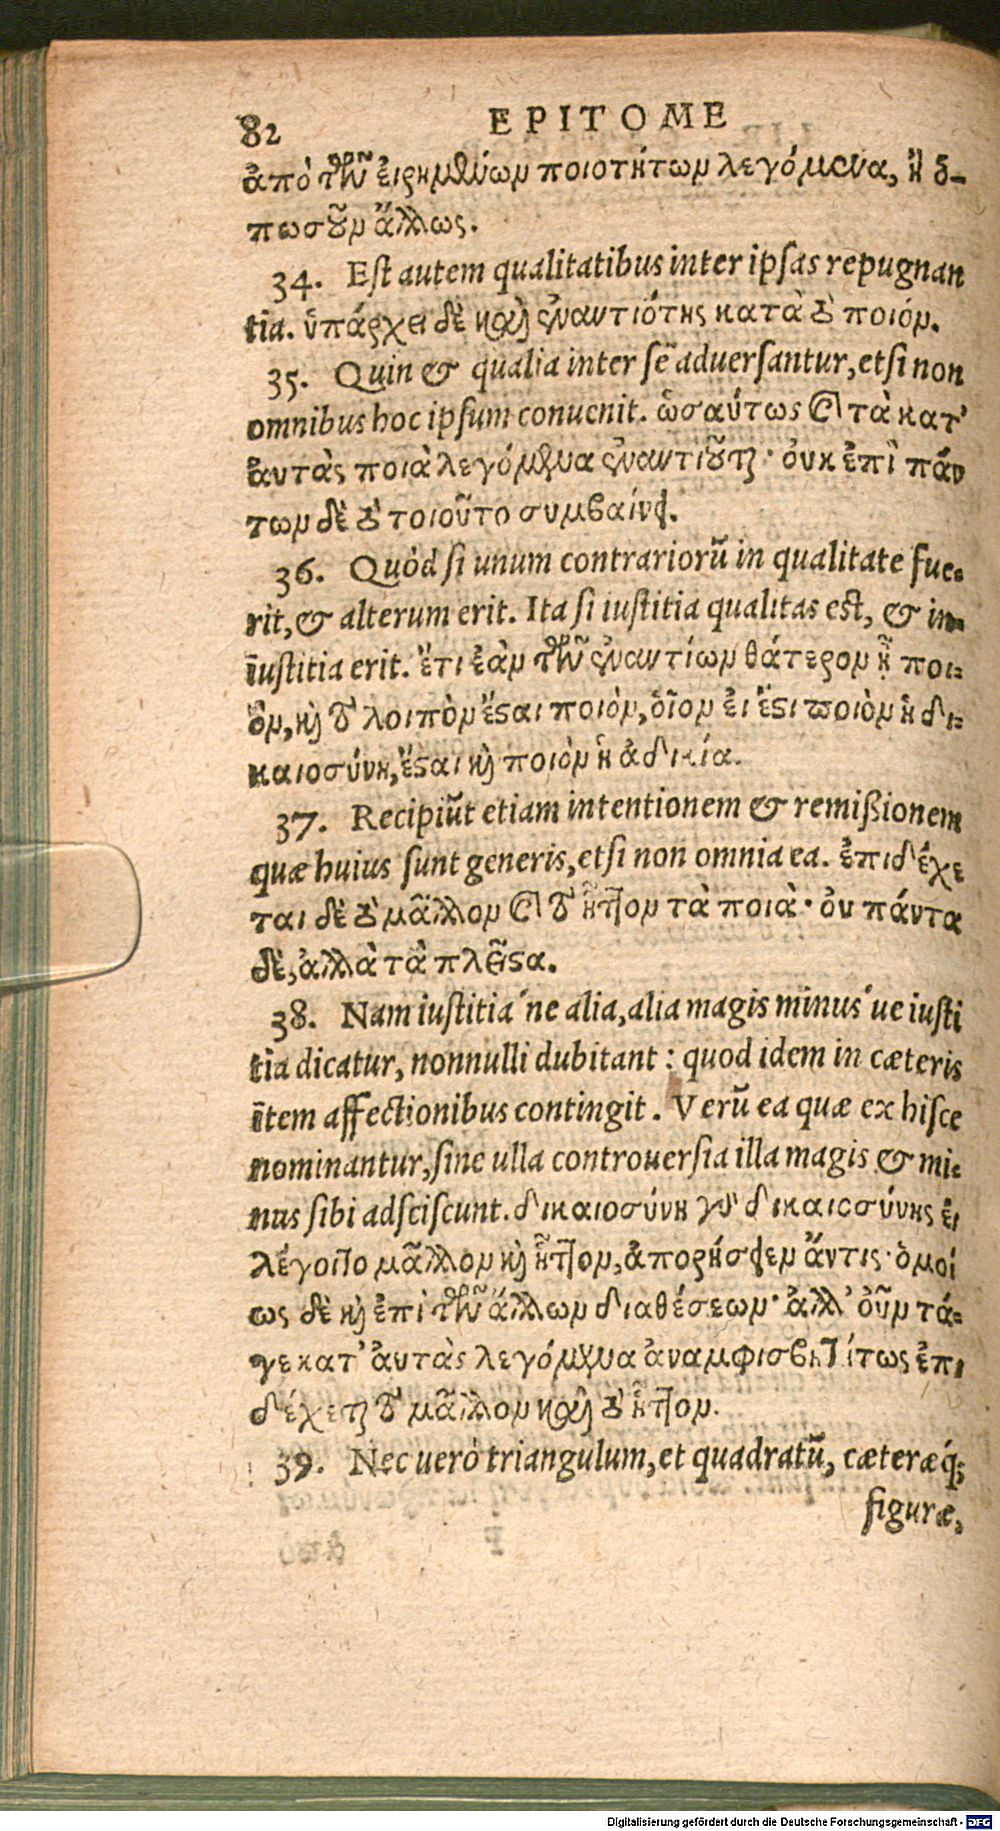 82 EPITOME
ἀπὸ τῶν εἰρημένων ποιοτήτων λεγόμενα, ἢ ὁ-
πωσοῦν ἄλλως.
34. Est autem qualitatibus inter ipsas repugnan
tia. ὑπάρχει δὲ καὶ ἐναντιότης κατὰ τὸ ποιόν.
35. Quin & qualia inter se aduersantur, etsi non
omnibus hoc ipsum conuenit. ὡσαύτως καὶ τὰ κατ'
ἀυτὰς ποιὰ λεγόμενα ἐναντιοῦται· ὀυκ ἐπὶ πάν
των δὲ τὸ τοιοῦτο συμβαίνει.
36. Quòd si unum contrariorū in qualitate fue-
rit, & alterum erit. Ita si iustitia qualitas est, & in-
iustitia erit. ἔτι ἐὰν τῶν ἐναντίων θάτερον ᾖ ποι-
ὸν, καὶ τὸ λοιπὸν ἔσαι ποιὸν, ὁῖον ἐι ἔσι ποιὸν ἡ δι-
καιοσύνη, ἔσαι καὶ ποιὸν ἡ ἀδικία.
37. Recipiūt etiam intentionem & remißionem
quæ huius sunt generis, etsi non omnia ea. ἐπιδέχε
ται δὲ τὸ μᾶλλον καὶ τὸ ἧττον τὰ ποιὰ· ὀυ πάντα
δὲ, ἀλλὰ τὰ πλεῖσα.
38. Nam iustitia'ne alia, alia magis minus'ue iusti
tia dicatur, nonnulli dubitant: quod idem in cæteris
item affectionibus contingit. Verū ea quæ ex hisce
nominantur, sine ulla controuersia illa magis & mi-
nus sibi adsciscunt. δικαιοσύνη γὰρ δικαιοσύνης ἐι
λέγοιτο μᾶλλον καὶ ἧττον, ἀπορήσειεν ἄν τις· ὁμοί
ως δὲ καὶ ἐπὶ τῶν ἄλλων διαθέσεων· ἀλλ' ὀῦν τά-
γε κατ' ἀυτὰς λεγόμενα ἀναμφισβητήτως ἐπι
δέχεται τὸ μᾶλλον καὶ τὸ ἧττον.
39. Nec uerò triangulum, et quadratū, cæteræq́;
figuræ,
Digitalisierung gefördert durch die Deutsche Forschungsgemeinschaft - DFG